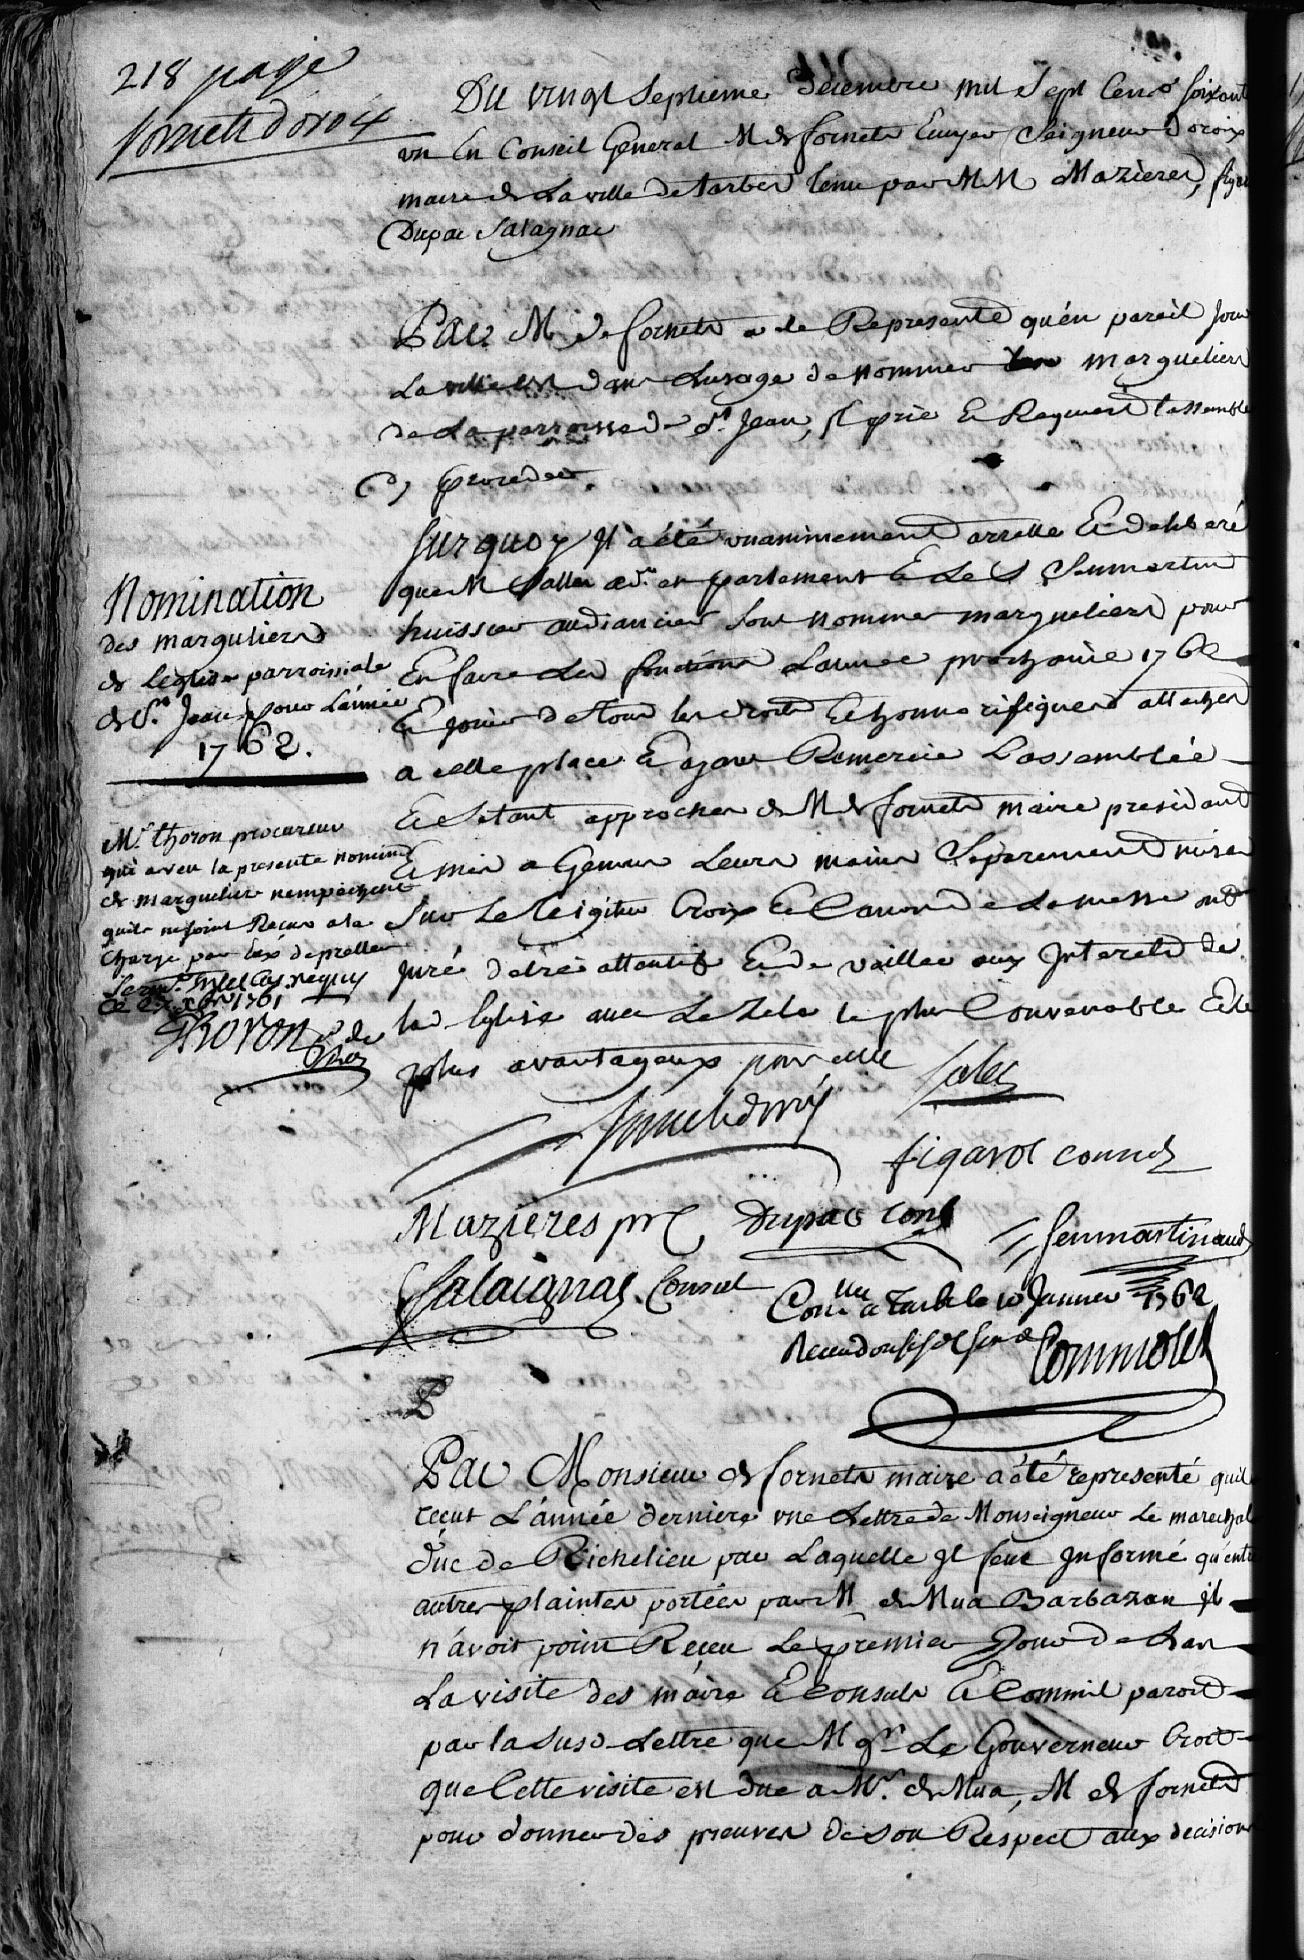 218 page
fornets doroix
Du vingt Septieme decembre mil Sept Cens soixante
un En Conseil General M de fornets Ecuyer Seigneur doroix
maire de La ville de tarbes tenu par MM Mazieres, figarol
Dupac Salagnac
Par M de fornets a ete Represente qu'en pareil jour
La ville est dans Lusage de nommer marguliers
de La parroisse de St Jean, Il prie & Requiert lassemblee
dy proceder.
Sur quoy Il a été unanimement arrette & deliberé
que M Salles avt en parlement & Le S Senmartin
huissier audiancier Sont nommes marguliers pour
En faire Les fonctions Lannee prochaine 1762
& jouir de tous les droits & honnorifiques attaches
a cette place & ayant Remercie Lassemblée
& Setant approches de M de fornets maire presidant
& mis a Genoux Leurs mains Separement mises
Sur Le Teigitur Croix & Canon de La messe ont
juré detre attentifs & de veiller aux Interets de
lad Eglise avec Le Zele le plus Convenable & le
plus avantageux pour elle
Nomination
des marguliers
de leglise parroissiale
de St Jean pour L'année
1762.
Mr. thoron procureur
qui a veu la presente nomination
de margulier nempeche
quils ne soint Recus a la
Charge par eux de pretter
Serm.t
ce 27 xbre 1761
Thoron pr du
Roy
Sales
fornets doroix
figarol consul
Mazieres pr C Dupac cons
Senmartin aud
Salaignac Consul
Con.lle a Tarbe le 10 Janvier 1762
Receu douse sols six d
Commolet
Par Monsieur de fornets maire a été representé quil
receut L'année derniere une Lettre de Monseigneur Le marechal
duc de Richelieu par Laquelle Il feut Informé qu'entre
autres plaintes portées par M de Mua Barbazan Il
n'avoit point Receu Le premier Jour de Lan
La visite des maire & Consuls & Comme Il paroit
par la Susd Lettre que M gr Le Gouverneur Croit
que Cette visite est due a Mr. de Mua, M de fornets
pour donner des preuves de son Respect aux decisions